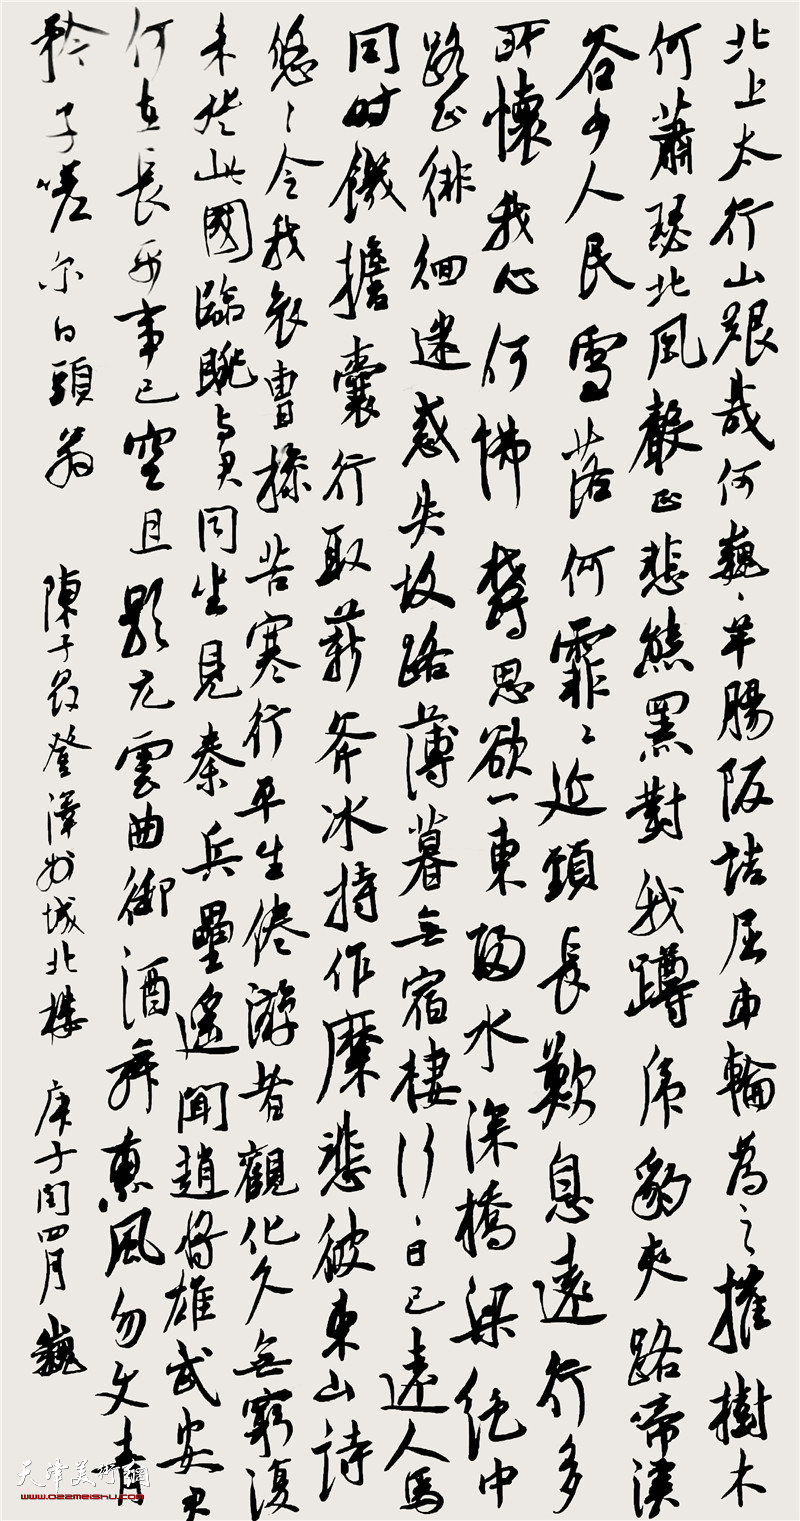 北上太行山艱哉何巍々羊腸阪詰屈車輪為之摧樹木
何蕭瑟北風聲正悲熊羆對我蹲虎豹夾路啼溪
谷少人民雪落何霏々延頸長歎息遠行多
所懷我心何怫鬱思欲一東歸水深橋梁絕中
路正徘徊迷惑失故路薄暮無宿棲行々日已遠人馬
同時饑擔囊行取薪斧冰持作糜悲彼東山詩
悠々令我哀曹操苦寒行平生倦游者觀化久無窮復
來登此國臨眺与君同坐見秦兵壘遙聞趙將雄武安君
何在長平事已空且歌玄雲曲御酒舞薰風勿使青
衿子嗟尔白頭翁 陳子昂登澤州城北樓 庚子閏四月 巍
天津美術網
www.022meishu.com